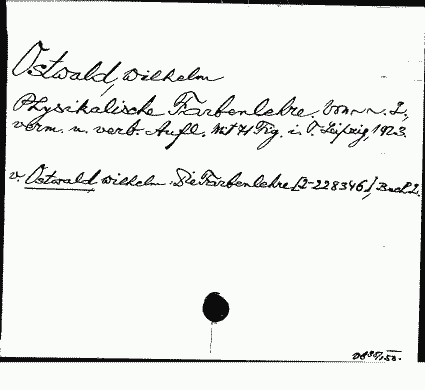 Ostwald, Wilhelm
Physikalische Farbenlehre. Von ~ ~. 2.,
verm. u. verb. Aufl. Mit 71 Fig. i. T. Leipzig, 1923.
v. Ostwald, Wilhelm. Die Farbenlehre [I-228346], Buch 2.